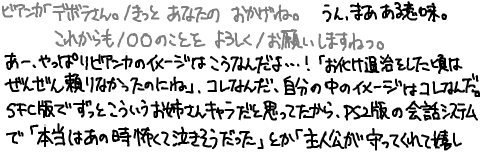 ビアンカ「デボラさん。/きっと あなたの おかげね。 うん、まあある意味。
これからも/○○のことを よろしく/お願いしますねっ。
あー、やっぱりビアンカのイメージはこうなんだよ…!「お化け退治をした頃は
ぜんぜん頼りなかったのにね」、コレなんだ、自分の中のイメージはコレなんだ。
SFC版でずっとこういうお姉さんキャラだと思ってたから、PS2版の会話システム
で「本当はあの時怖くて泣きそうだった」とか「主人公が守ってくれて嬉し